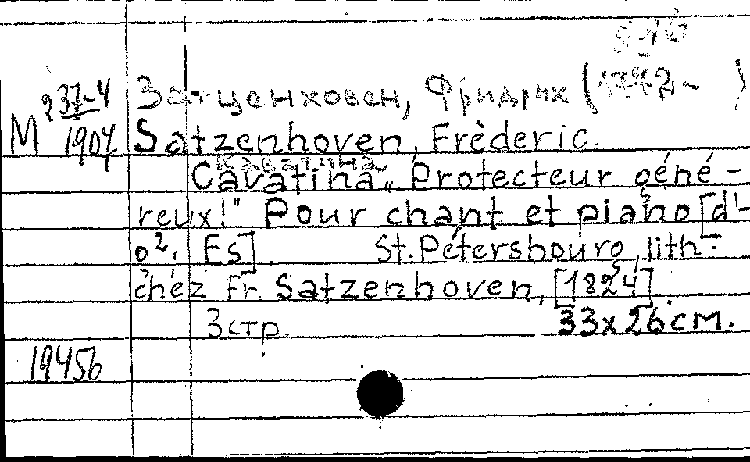 M 237-4
1907
Затценховен, Фридрих (1772- )
Satzenhoven, Frèderic.
Cavatina „Protecteur géné-
reux!" Pour chant et piano [d'-
o². Es]. St. Pétersbourg, lith-
chez Fr. Satzenhoven, [1824].
3 стр. 33x26 см.
19456